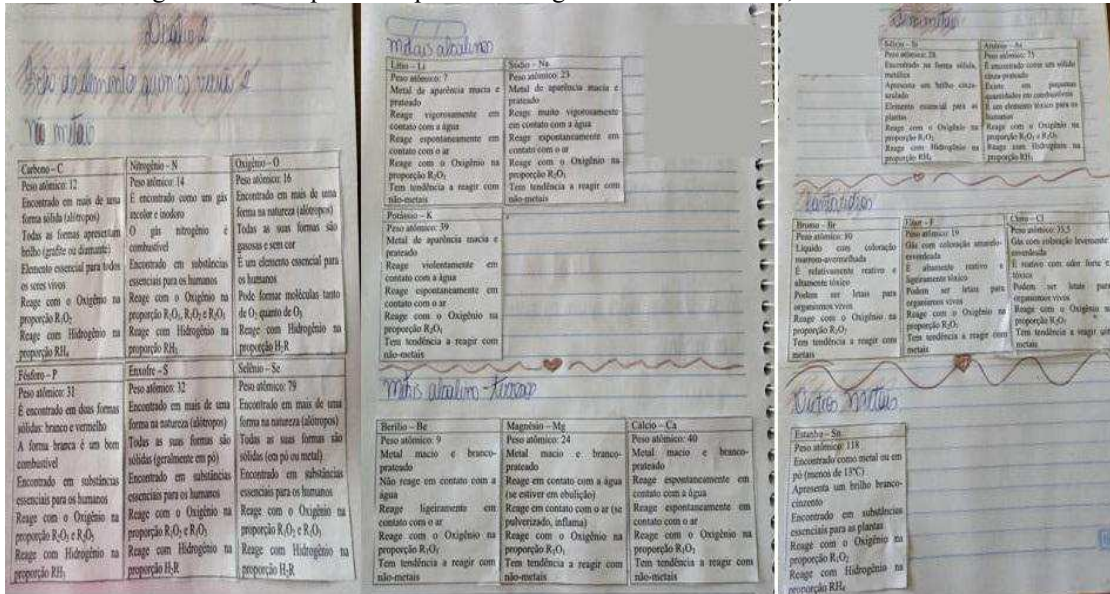 Não metais
Carbono – C
Peso atômico: 12
Encontrado em mais de uma
forma sólida (alótropos)
Todas as formas apresentam
brilho (grafite ou diamante)
Elemento essencial para todos
os seres vivos
Reage com o Oxigênio na
proporção R₁O₂
Reage com Hidrogênio na
proporção RH₄
Nitrogênio – N
Peso atômico: 14
É encontrado como um gás
incolor e inodoro
O gás nitrogênio é
combustível
Encontrado em substâncias
essenciais para os humanos
Reage com o Oxigênio na
proporção R₂O₁, R₁O₂ e R₂O₅
Reage com Hidrogênio na
proporção RH₃
Oxigênio – O
Peso atômico: 16
Encontrado em mais de uma
forma na natureza (alótropos)
Todas as suas formas são
gasosas e sem cor
É um elemento essencial para
os humanos
Pode formar moléculas tanto
de O₂ quanto de O₃
Reage com Hidrogênio na
proporção H₂R
Fósforo – P
Peso atômico: 31
É encontrado em duas formas
sólidas: branco e vermelho
A forma branca é um bom
combustível
Encontrado em substâncias
essenciais para os humanos
Reage com o Oxigênio na
proporção R₁O₂ e R₂O₅
Reage com Hidrogênio na
proporção RH₃
Enxofre – S
Peso atômico: 32
Encontrado em mais de uma
forma na natureza (alótropos)
Todas as suas formas são
sólidas (geralmente em pó)
Encontrado em substâncias
essenciais para os humanos
Reage com o Oxigênio na
proporção R₁O₂ e R₁O₃
Reage com Hidrogênio na
proporção H₂R
Selênio – Se
Peso atômico: 79
Encontrado em mais de uma
forma na natureza (alótropos)
Todas as suas formas são
sólidas (em pó ou metal)
Encontrado em substâncias
essenciais para os humanos
Reage com o Oxigênio na
proporção R₁O₂ e R₁O₃
Reage com Hidrogênio na
proporção H₂R
Metais alcalinos
Lítio – Li
Peso atômico: 7
Metal de aparência macia e
prateado
Reage vigorosamente em
contato com a água
Reage espontaneamente em
contato com o ar
Reage com o Oxigênio na
proporção R₂O₁
Tem tendência a reagir com
não-metais
Sódio – Na
Peso atômico: 23
Metal de aparência macia e
prateado
Reage muito vigorosamente
em contato com a água
Reage espontaneamente em
contato com o ar
Reage com o Oxigênio na
proporção R₂O₁
Tem tendência a reagir com
não-metais
Potássio – K
Peso atômico: 39
Metal de aparência macia e
prateado
Reage violentamente em
contato com a água
Reage espontaneamente em
contato com o ar
Reage com o Oxigênio na
proporção R₂O₁
Tem tendência a reagir com
não-metais
Metais alcalino-terroso
Berílio – Be
Peso atômico: 9
Metal macio e branco-
prateado
Não reage em contato com a
água
Reage ligeiramente em
contato com o ar
Reage com o Oxigênio na
proporção R₁O₁
Tem tendência a reagir com
não-metais
Magnésio – Mg
Peso atômico: 24
Metal macio e branco-
prateado
Reage em contato com a água
(se estiver em ebulição)
Reage em contato com o ar (se
pulverizado, inflama)
Reage com o Oxigênio na
proporção R₁O₁
Tem tendência a reagir com
não-metais
Cálcio – Ca
Peso atômico: 40
Metal macio e branco-
prateado
Reage espontaneamente em
contato com a água
Reage espontaneamente em
contato com o ar
Reage com o Oxigênio na
proporção R₁O₁
Tem tendência a reagir com
não-metais
Semimetais
Silício – Si
Peso atômico: 28
Encontrado na forma sólida,
metálica
Apresenta um brilho cinza-
azulado
Elemento essencial para as
plantas
Reage com o Oxigênio na
proporção R₁O₂
Reage com Hidrogênio na
proporção RH₄
Arsênio – As
Peso atômico: 75
É encontrado como um sólido
cinza-prateado
Existe em pequenas
quantidades em combustíveis
É um elemento tóxico para os
humanos
Reage com o Oxigênio na
proporção R₁O₂ e R₂O₅
Reage com Hidrogênio na
proporção RH₃
Bromo – Br
Peso atômico: 80
Líquido com coloração
marrom-avermelhada
É relativamente reativo e
altamente tóxico
Podem ser letais para
organismos vivos
Reage com o Oxigênio na
proporção R₂O₇
Tem tendência a reagir com
metais
Flúor – F
Peso atômico: 19
Gás com coloração amarelo-
esverdeada
É altamente reativo e
ligeiramente tóxico
Podem ser letais para
organismos vivos
Reage com o Oxigênio na
proporção R₂O₁
Tem tendência a reagir com
metais
Cloro – Cl
Peso atômico: 35,5
Gás com coloração levemente
esverdeada
É reativo com odor forte e
tóxico
Podem ser letais para
organismos vivos
Reage com o Oxigênio na
proporção R₂O₇
Tem tendência a reagir com
metais
Outros Metais
Estanho – Sn
Peso atômico: 118
Encontrado como metal ou em
pó (menos de 13°C)
Apresenta um brilho branco-
cinzento
Encontrado em substâncias
essenciais para as plantas
Reage com o Oxigênio na
proporção R₁O₂
Reage com Hidrogênio na
proporção RH₄